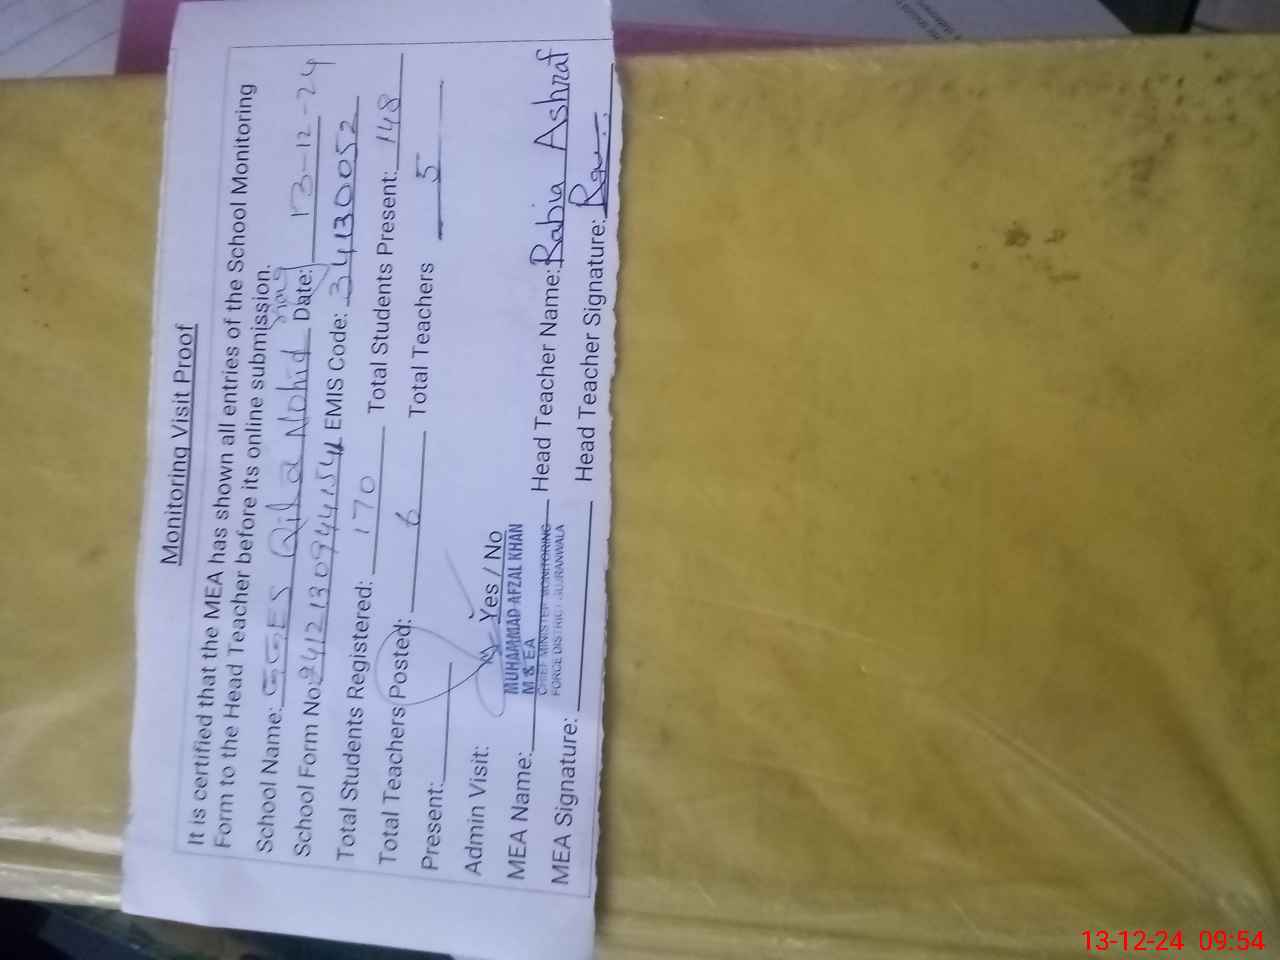 Monitoring Visit Proof
It is certified that the MEA has shown all entries of the School Monitoring
Form to the Head Teacher before its online submission.
School Name: GGES Qila Nohid Date: 13-12-24
School Form No: EMIS Code: 34130052
Total Students Registered: 170 Total Students Present: 148
Total Teachers Posted: 6 Total Teachers 5
Present:
Admin Visit: Yes / No
MUHAMMAD AFZAL KHAN
M & EA
MEA Name: Head Teacher Name: Rabia Ashraf
CHIEF MINISTER MONITORING
FORCE DISTRICT GUJRANWALA
MEA Signature: Head Teacher Signature:
13-12-24 09:54